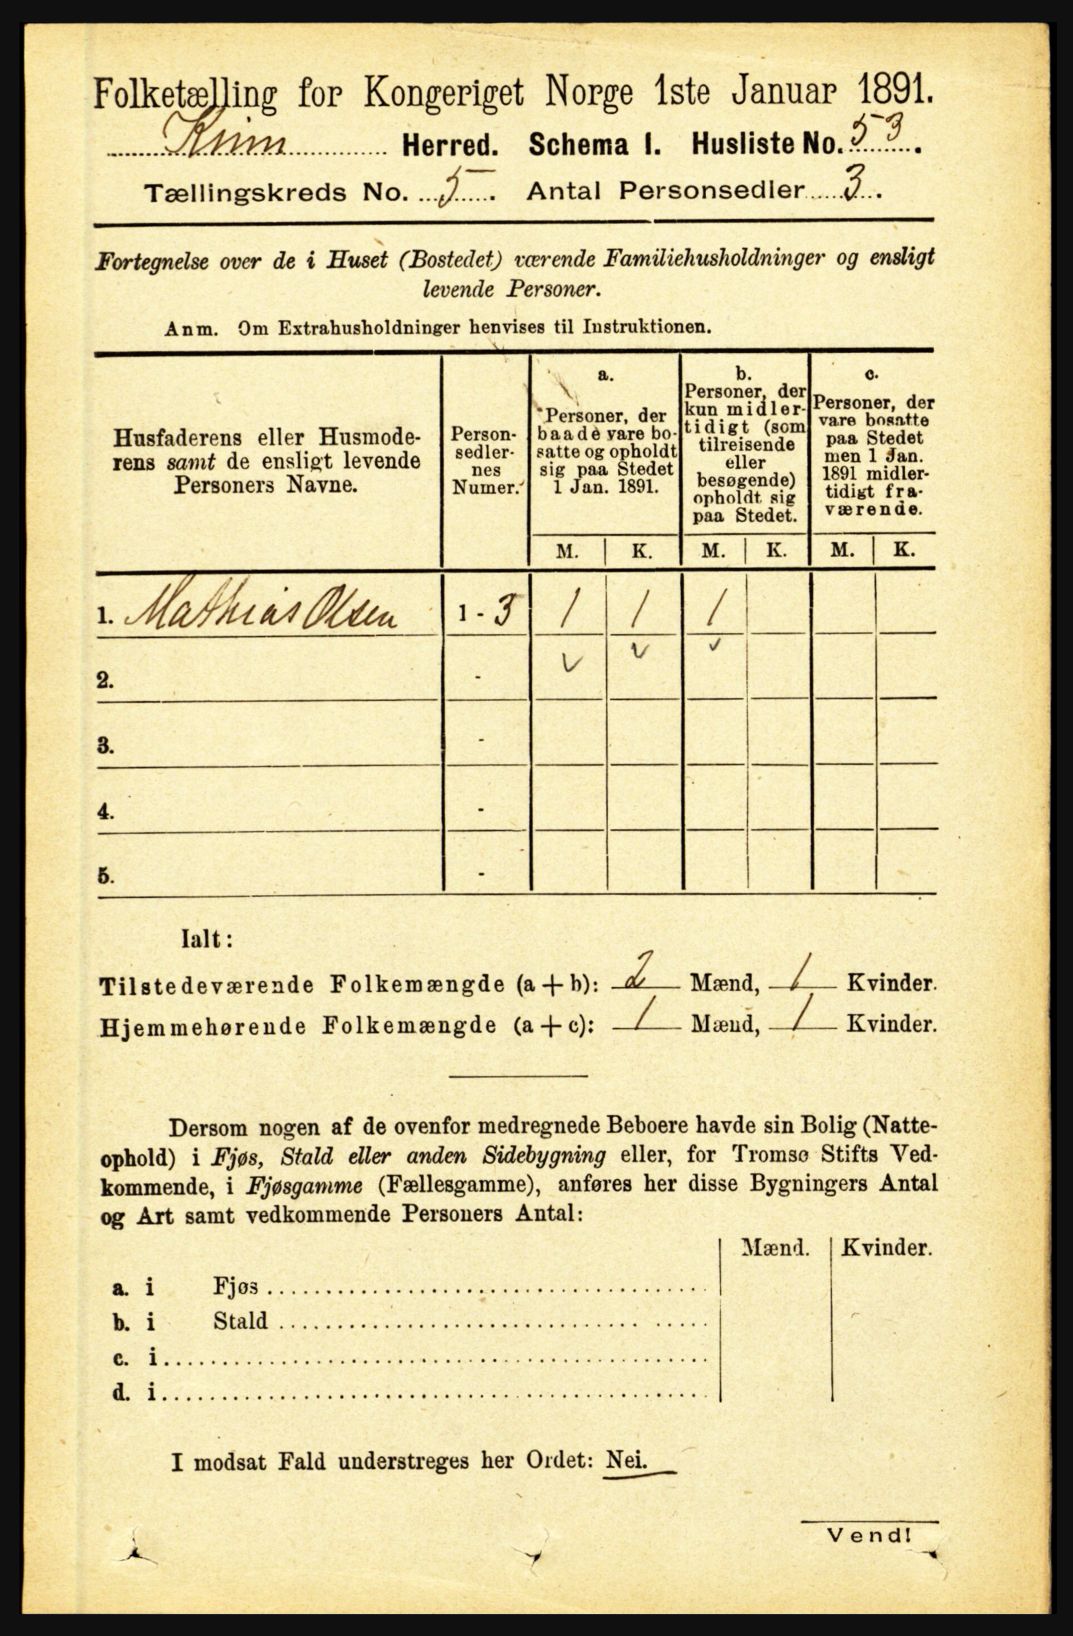 Folketælling for Kongeriget Norge 1ste Januar 1891.
Kinn Herred. Schema I. Husliste No. 53.
Tællingskreds No. 5. Antal Personsedler 3.
Fortegnelse over de i Huset (Bostedet) værende Familiehusholdninger og ensligt
levende Personer.
Anm. Om Extrahusholdninger henvises til Instruktionen.
Husfaderens eller Husmode-
rens samt de ensligt levende
Personers Navne.
Person-
sedler-
nes
Numer.
a.
Personer, der
baade vare bo-
satte og opholdt
sig paa Stedet
1 Jan. 1891.
b.
Personer, der
kun midler-
tidigt (som
tilreisende
eller
besøgende)
opholdt sig
paa Stedet.
c.
Personer, der
vare bosatte
paa Stedet
men 1 Jan.
1891 midler-
tidigt fra-
værende.
M. K. M. K. M. K.
1. Mathias Olsen 1 - 3 1 1 1
2. -
3. -
4. -
5. -
Ialt:
Tilstedeværende Folkemængde (a + b): 2 Mænd, 1 Kvinder.
Hjemmehørende Folkemængde (a + c): 1 Mænd, 1 Kvinder.
Dersom nogen af de ovenfor medregnede Beboere havde sin Bolig (Natte-
ophold) i Fjøs, Stald eller anden Sidebygning eller, for Tromsø Stifts Ved-
kommende, i Fjøsgamme (Fællesgamme), anføres her disse Bygningers Antal
og Art samt vedkommende Personers Antal:
Mænd. Kvinder.
a. i Fjøs
b. i Stald
c. i
d. i
I modsat Fald understreges her Ordet: Nei.
Vend!